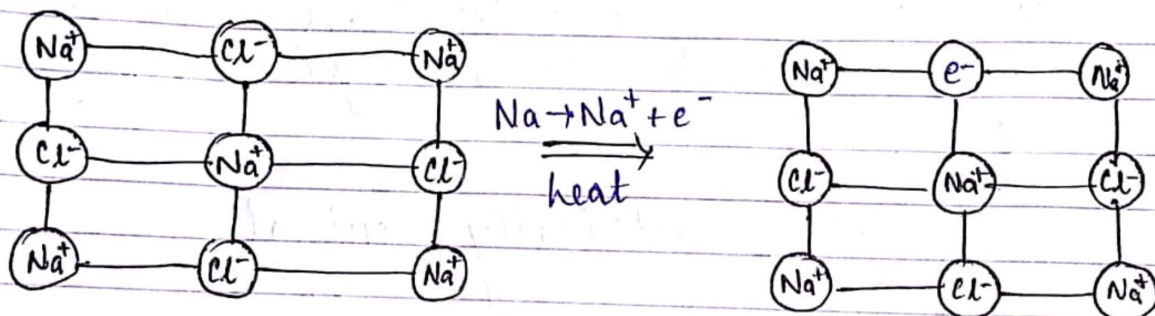 Na⁺ Cl⁻ Na⁺
Cl⁻ Na⁺ Cl⁻
Na⁺ Cl⁻ Na⁺
Na → Na⁺ + e⁻
heat
Na⁺ e⁻ Na⁺
Cl⁻ Na⁺ Cl⁻
Na⁺ Cl⁻ Na⁺